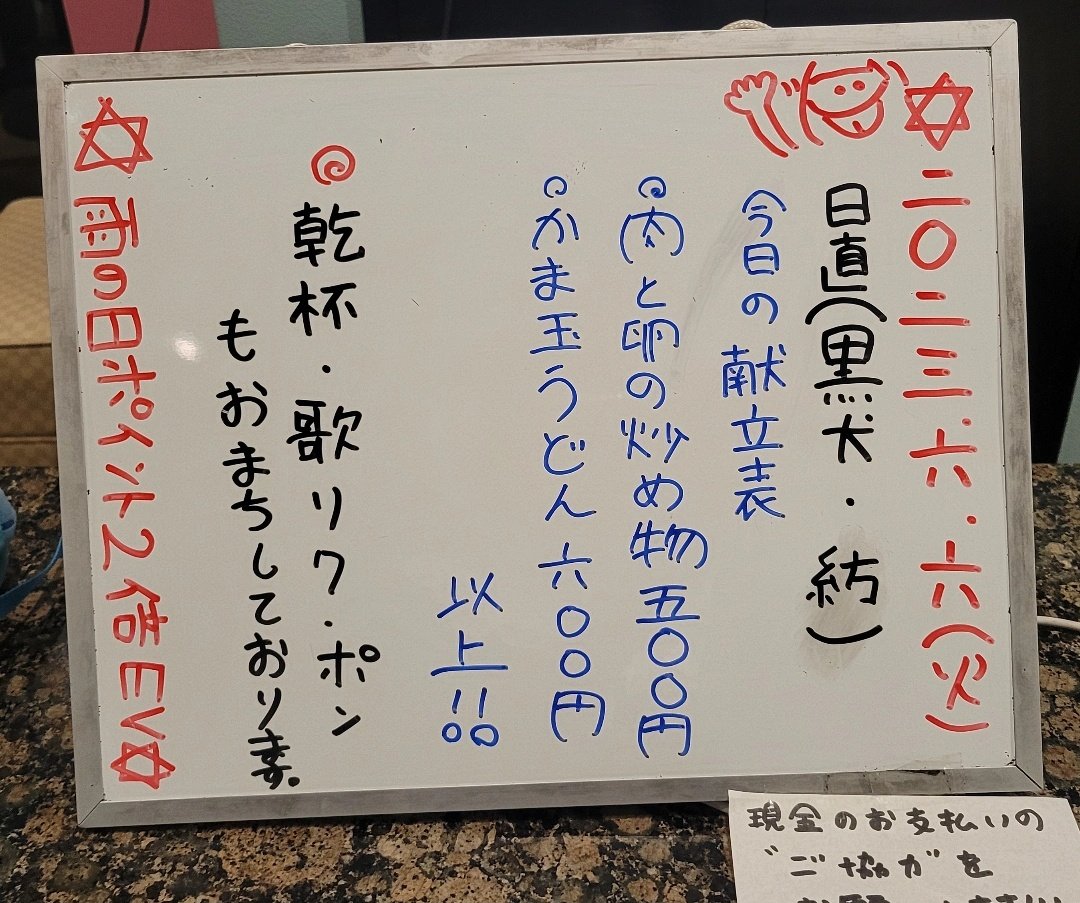 二〇二三.六.六(火)
日直(黒犬・紡)
今日の献立表
肉と卵の炒め物五〇〇円
かま玉うどん六〇〇円
以上!!
乾杯・歌リク・ポン
もおまちしております。
雨の日ポイント2倍EV
現金のお支払いの
“ご協力”を